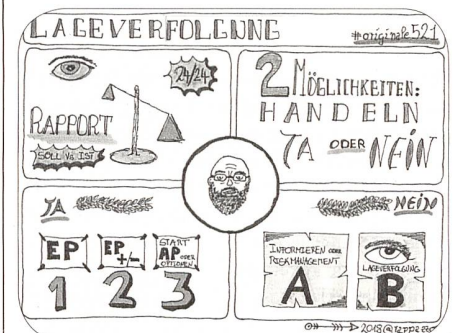 LAGEVERFOLGUNG
#originale521
24/24
RAPPORT
SOLL VS IST
2 MÖGLICHKEITEN:
HANDELN
JA ODER NEIN
JA
EP
EP +/-
START AP ODER OPTIONEN
1 2 3
NEIN
INFORMIEREN ODER RISKMANAGEMENT
A
LAGEVERFOLGUNG
B
2018@